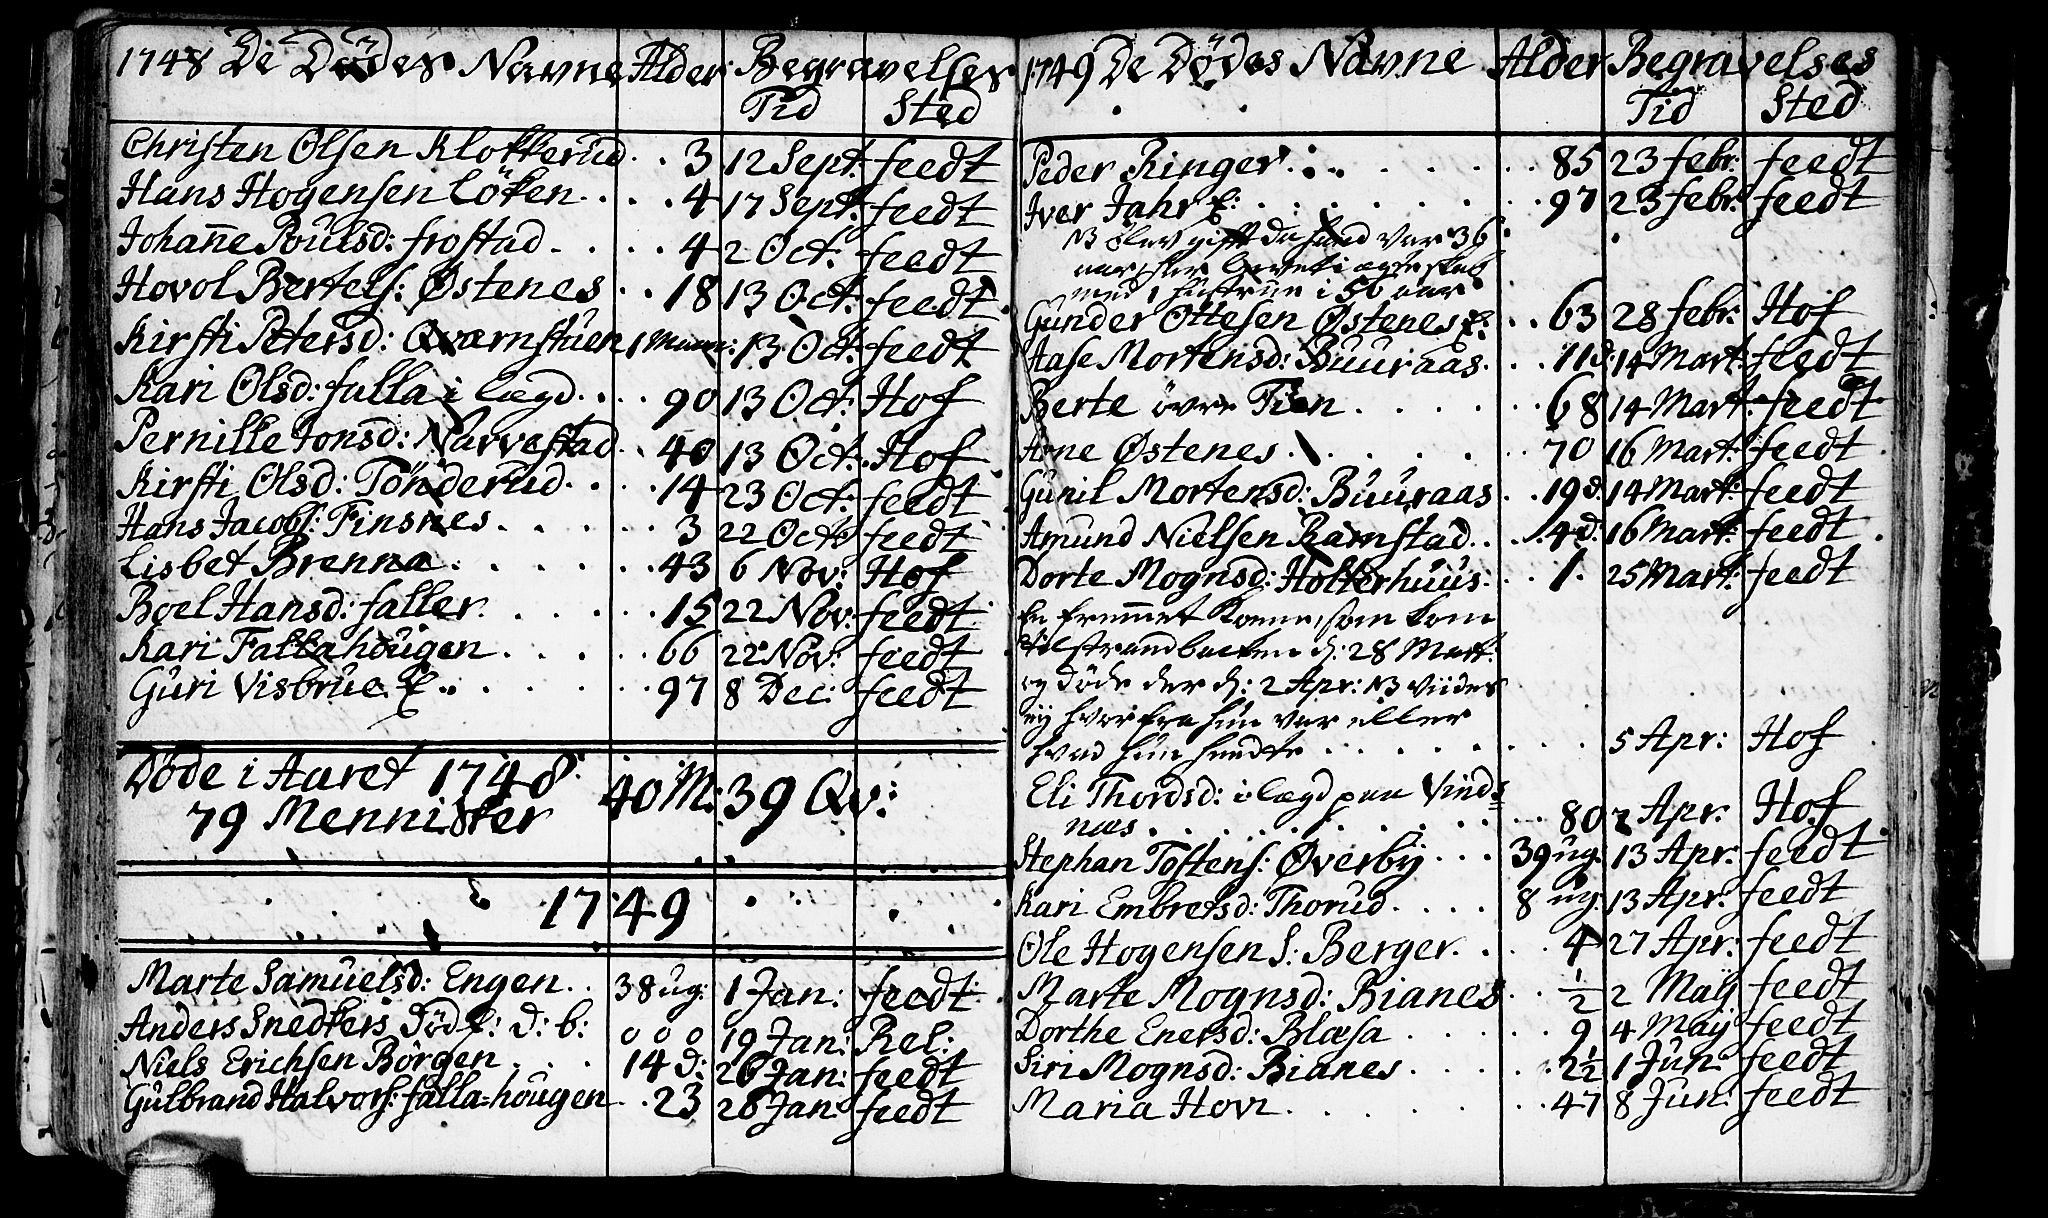 1748 De Dødes Navne Alder Begravelses
Tid Sted
Christen Olsen Klokkerud 3 12 Sept: feedt
Hans Hogensen Löken 4 17 Sept: feedt
Johanne Poulsd: frostad 4 2 Oct: feedt
Hovol Bertels: Østenes 18 13 Oct: feedt
Kirsti Petersd: Qværnstuen 1 Maan: 13 Oct: feedt
Kari Olsd: falla i lægd 90 13 Oct: Hof
Pernille Jonsd: Narvestad 40 13 Oct: Hof
Kirsti Olsd: Tönderud 14 23 Oct: feedt
Hans Jacobs: Finsnes 3 22 Oct: feedt
Lisbet Brenna 43 6 Nov: Hof
Boel Hansd: faller 15 22 Nov: feedt
Kari Fallahougen 66 22 Nov: feedt
Guri Visbrue 97 8 Dec: feedt
Døde i Aaret 1748
79 Mennisker 40 M: 39 Qv:
1749
Marte Samuelsd: Engen 38 ug: 1 Jan: feedt
Anders Snedkers Död f: d: b: 0 0 0 19 Jan: Rel:
Niels Erichsen Börgen 14 d: 26 Jan: feedt
Gulbrand Halvors: falla=hougen 23 26 Jan: feedt
1749 De Dødes Navne Alder Begravelses
Tid Sted
Peder Ringer 85 23 febr: feedt
Iver Jahr 97 23 febr: feedt
NB blev gift da hand var 36
aar, levet i ægteskab
med 1 hustrue i 50 aar
Gunder Ottesen Østenes 63 28 febr: Hof
Aase Mortensd: Buuraas 11 d: 14 Mart: feedt
Berte övre Tien 68 14 Mart: feedt
Arne Østenes 70 16 Mart: feedt
Gunil Mortensd: Buuraas 19 d: 14 Mart: feedt
Amund Nielsen Ramstad 4 d: 16 Mart: feedt
Dorte Mognsd: Holterhuus 1 25 Mart: feedt
En fremmet Kone, som kom
til strandbacken d: 28 Mart:
og döde der d: 2 Apr: NB viides
ey hvorfra hun var eller
hvad hun hendte 5 Apr: Hof
Eli Thordsd: i lægd paa Vind=
næs 80 2 Apr: Hof
Stephan Tostens: Øverby 39 ug. 13 Apr: feedt
Kari Embretsd: Thorud 8 ug. 13 Apr: feedt
Ole Hogensen S: Berger 4 27 Apr: feedt
Marte Mognsd: Bianes ½ 2 May feedt
Dorthe Enersd: Blæsa 9 4 May feedt
Siri Mognsd: Bianes 2½ 1 Jun: feedt
Maria Hovi 47 8 Jun: feedt